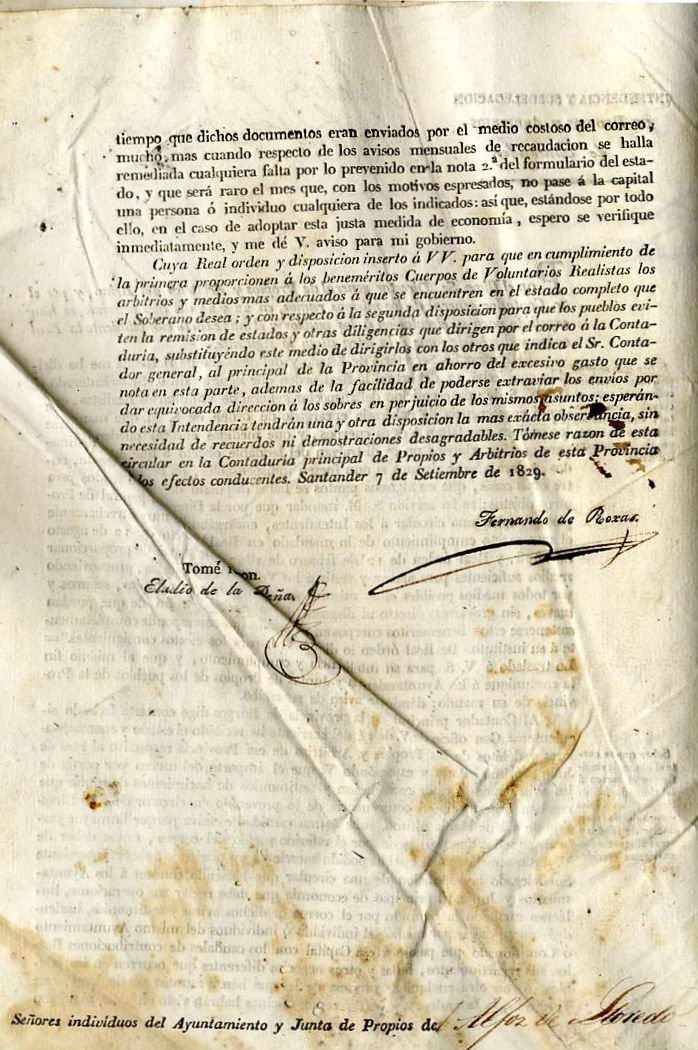 tiempo que dichos documentos eran enviados por el medio costoso del correo,
mucho mas cuando respecto de los avisos mensuales de recaudacion se halla
remediada cualquiera falta por lo prevenido en la nota 2.ª del formulario del esta-
do, y que será raro el mes que, con los motivos espresados, no pase á la capital
una persona ó individuo cualquiera de los indicados: asi que, estándose por todo
ello, en el caso de adoptar esta justa medida de economía, espero se verifique
inmediatamente, y me dé V. aviso para mi gobierno.
Cuya Real orden y disposicion inserto á VV. para que en cumplimiento de
la primera proporcionen á los beneméritos Cuerpos de Voluntarios Realistas los
arbitrios y medios mas adecuados á que se encuentren en el estado completo que
el Soberano desea; y con respecto á la segunda disposicion para que los pueblos evi-
ten la remision de estados y otras diligencias que dirigen por el correo á la Conta-
duría, substituyendo este medio de dirigirlos con los otros que indica el Sr. Conta-
dor general, al principal de la Provincia en ahorro del excesivo gasto que se
nota en esta parte, ademas de la facilidad de poderse extraviar los envios por
dar equivocada direccion á los sobres en perjuicio de los mismos asuntos; esperán-
do esta Intendencia tendrán una y otra disposicion la mas exácta observancia, sin
necesidad de recuerdos ni demostraciones desagradables. Tómese razon de esta
circular en la Contaduría principal de Propios y Arbitrios de esta Provincia
los efectos conducentes. Santander 7 de Setiembre de 1829.
Fernando de Roxas.
Tomé
Eladio de la Peña.
Señores individuos del Ayuntamiento y Junta de Propios de Alfoz de Lloredo